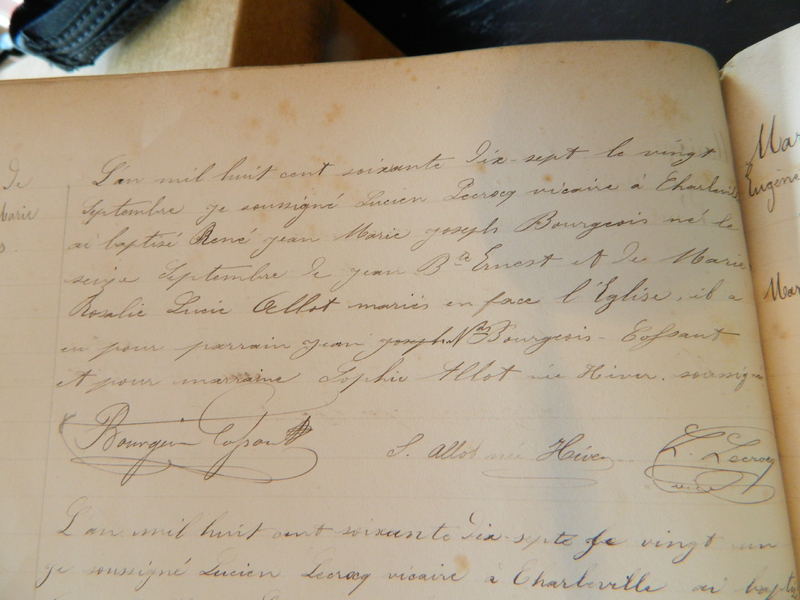 L'an mil huit cent soixante dix-sept le vingt
Septembre je soussigné Lucien Lecrocq vicaire à Charleville
ai baptisé René jean Marie joseph Bourgeois né le
seize Septembre de jean Bte Ernest et de Marie
Rosalie Lucie Allot mariés en face l'Eglise, il a
eu pour parrain jean joseph Bourgeois-Cossaut
et pour marraine Sophie Allot née Hiver. soussignés
Bourgeois Cossaut
S. Allot née Hiver
L. Lecrocq
vicaire
L'an mil huit cent soixante dix-sept le vingt un
je soussigné Lucien Lecrocq vicaire à Charleville ai
de
Marie
Mar
Eugène
Mar